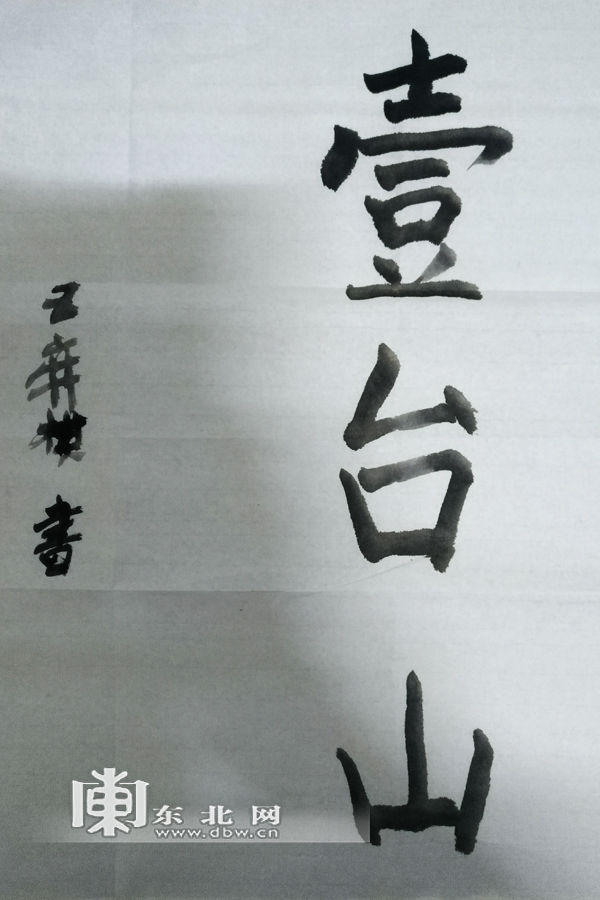 壹台山
王　　书
东北网
www.dbw.cn